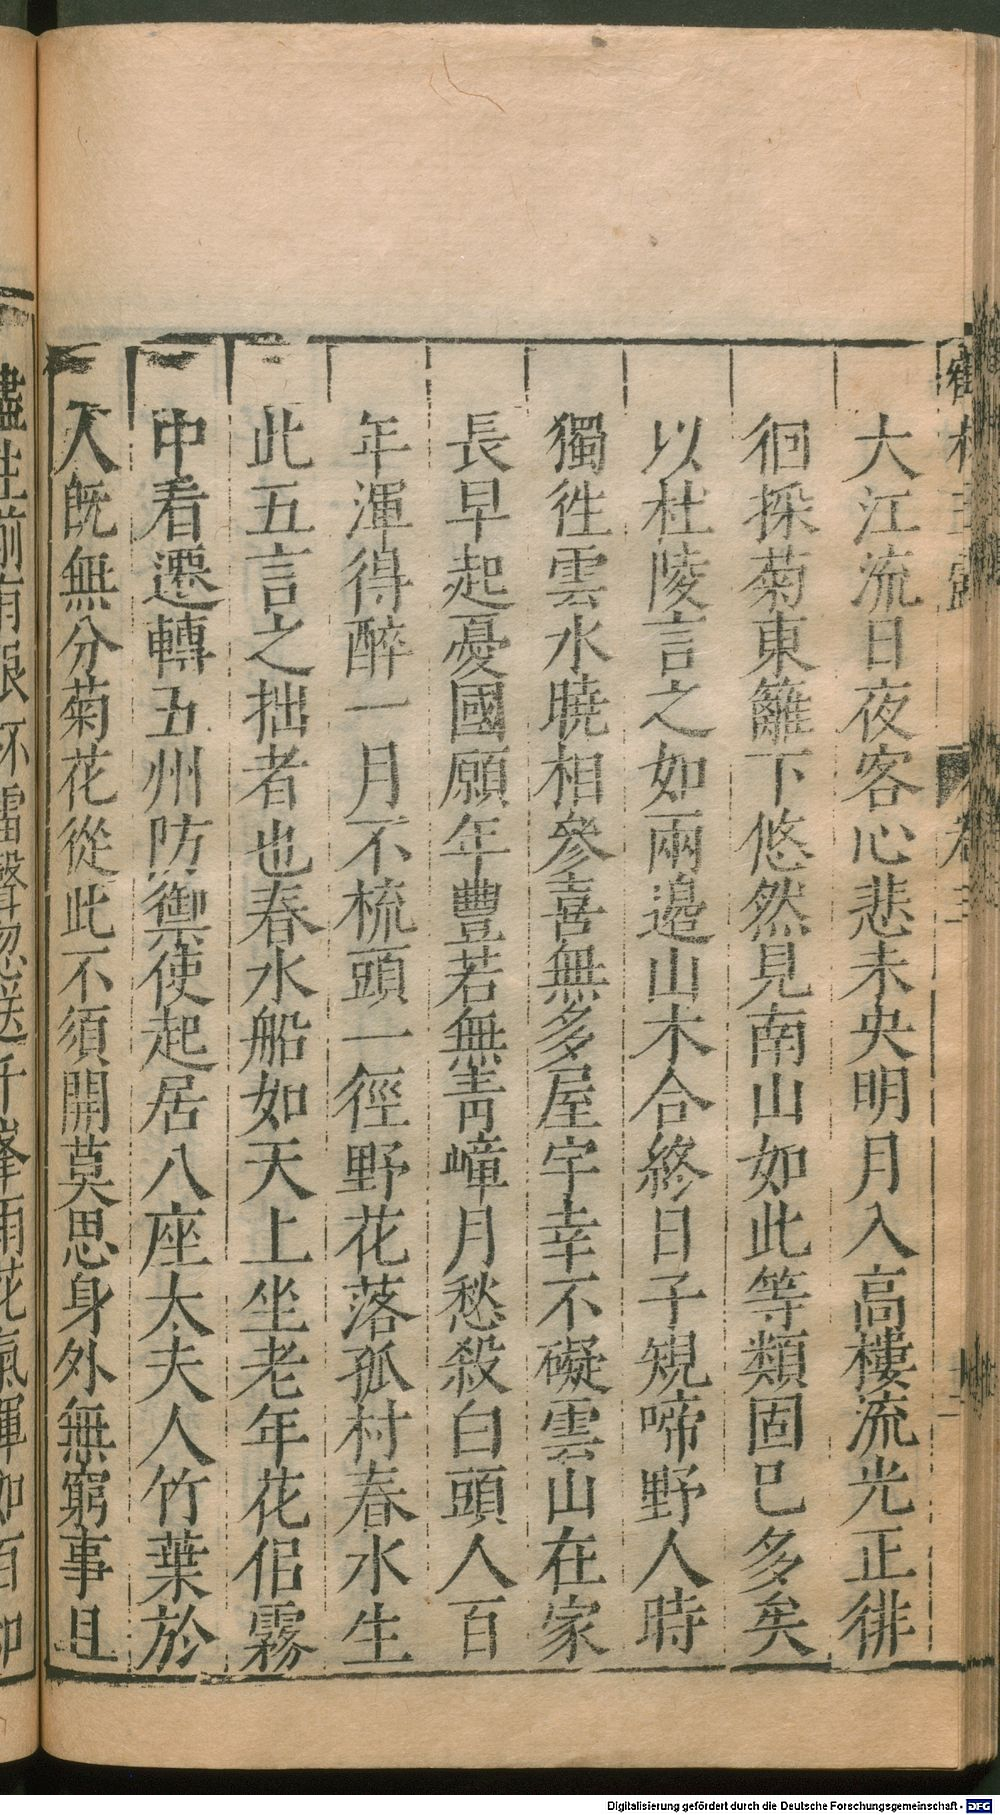 大江流日夜客心悲未央明月入高樓流光正徘
徊採菊東籬下悠然見南山如此等類固已多矣
以杜陵言之如兩邉山木合終日子規啼野人時
獨徃雲水曉相參喜無多屋宇幸不礙雲山在家
長早起憂國願年豐若無青嶂月愁殺白頭人百
年渾得醉一月不梳頭一徑野花落孤村春水生
此五言之拙者也春水船如天上坐老年花侣霧
中看遷轉五州防禦使起居八座太夫人竹葉於
人既無分菊花從此不須開莫思身外無窮事且
盡生前有限杯雷聲忽送千峯雨花氣渾如百和
Digitalisierung gefördert durch die Deutsche Forschungsgemeinschaft - DFG